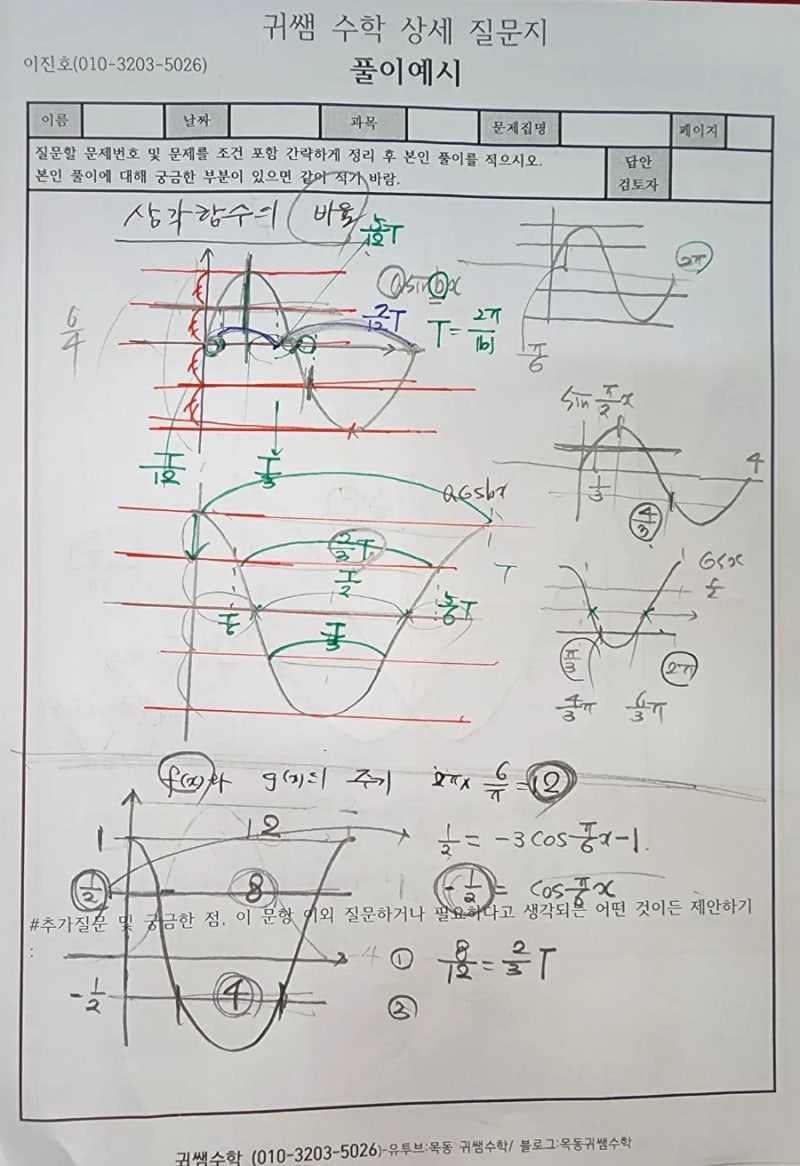 귀쌤 수학 상세 질문지
이진호(010-3203-5026)
풀이예시
이름 날짜 과목 문제집명 페이지
질문할 문제번호 및 문제를 조건 포함 간략하게 정리 후 본인 풀이를 적으시오.
본인 풀이에 대해 궁금한 부분이 있으면 같이 적기 바람.
답안
검토자
삼각함수의 비율
5/12 T
a sin bx
2π
6/4
T = 2π/|b|
π/6
sin π/2 x
T/12
T/3
4
1/3
4/3
a cos bx
2/3 T
T/2
T
cos x
T/6
5/6 T
T/3
π/3
2π
4/3 π
f(x)와 g(x)의 주기 2π × 6/π = 12
1
12
1/2 = -3cos π/6 x - 1.
1/2
8
-1/2 = cos π/6 x
#추가질문 및 궁금한 점, 이 문항 이외 질문하거나 필요하다고 생각되는 어떤 것이든 제안하기
:
① 8/12 = 2/3 T
-1/2
4
②
귀쌤수학 (010-3203-5026)-유투브:목동 귀쌤수학/ 블로그:목동귀쌤수학